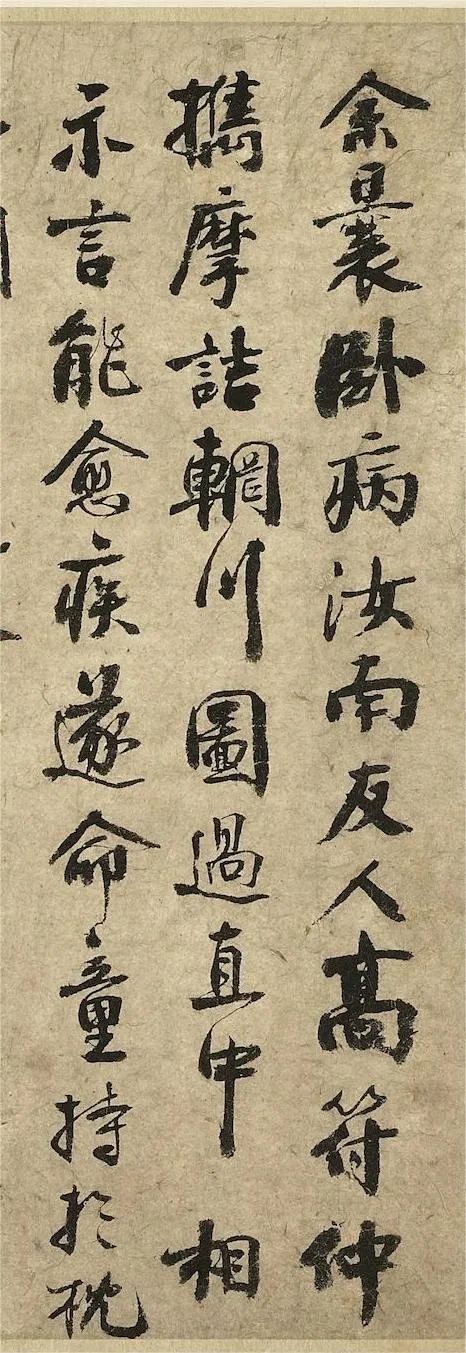 余曩臥病汝南友人高符仲
攜摩詰輞川圖過直中相
示言能愈疾遂命童持於枕